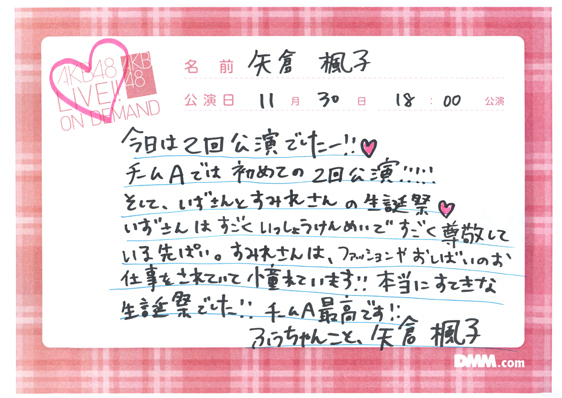 AKB48
LIVE!!
ON DEMAND
AKB
48
名前 矢倉 楓子
公演日 11月30日 18:00公演
今日は2回公演でしたー!!♥
チームAでは初めての2回公演!!!!!
そして、いずさんとすみれさんの生誕祭♥
いずさんはすごくいっしょうけんめいですごく尊敬して
いる先ぱい。すみれさんは、ファッションやおしばいのお
仕事をされていて憧れています!!本当にすてきな
生誕祭でした!! チームA最高です!!
ふぅちゃんこと、矢倉 楓子
DMM.com